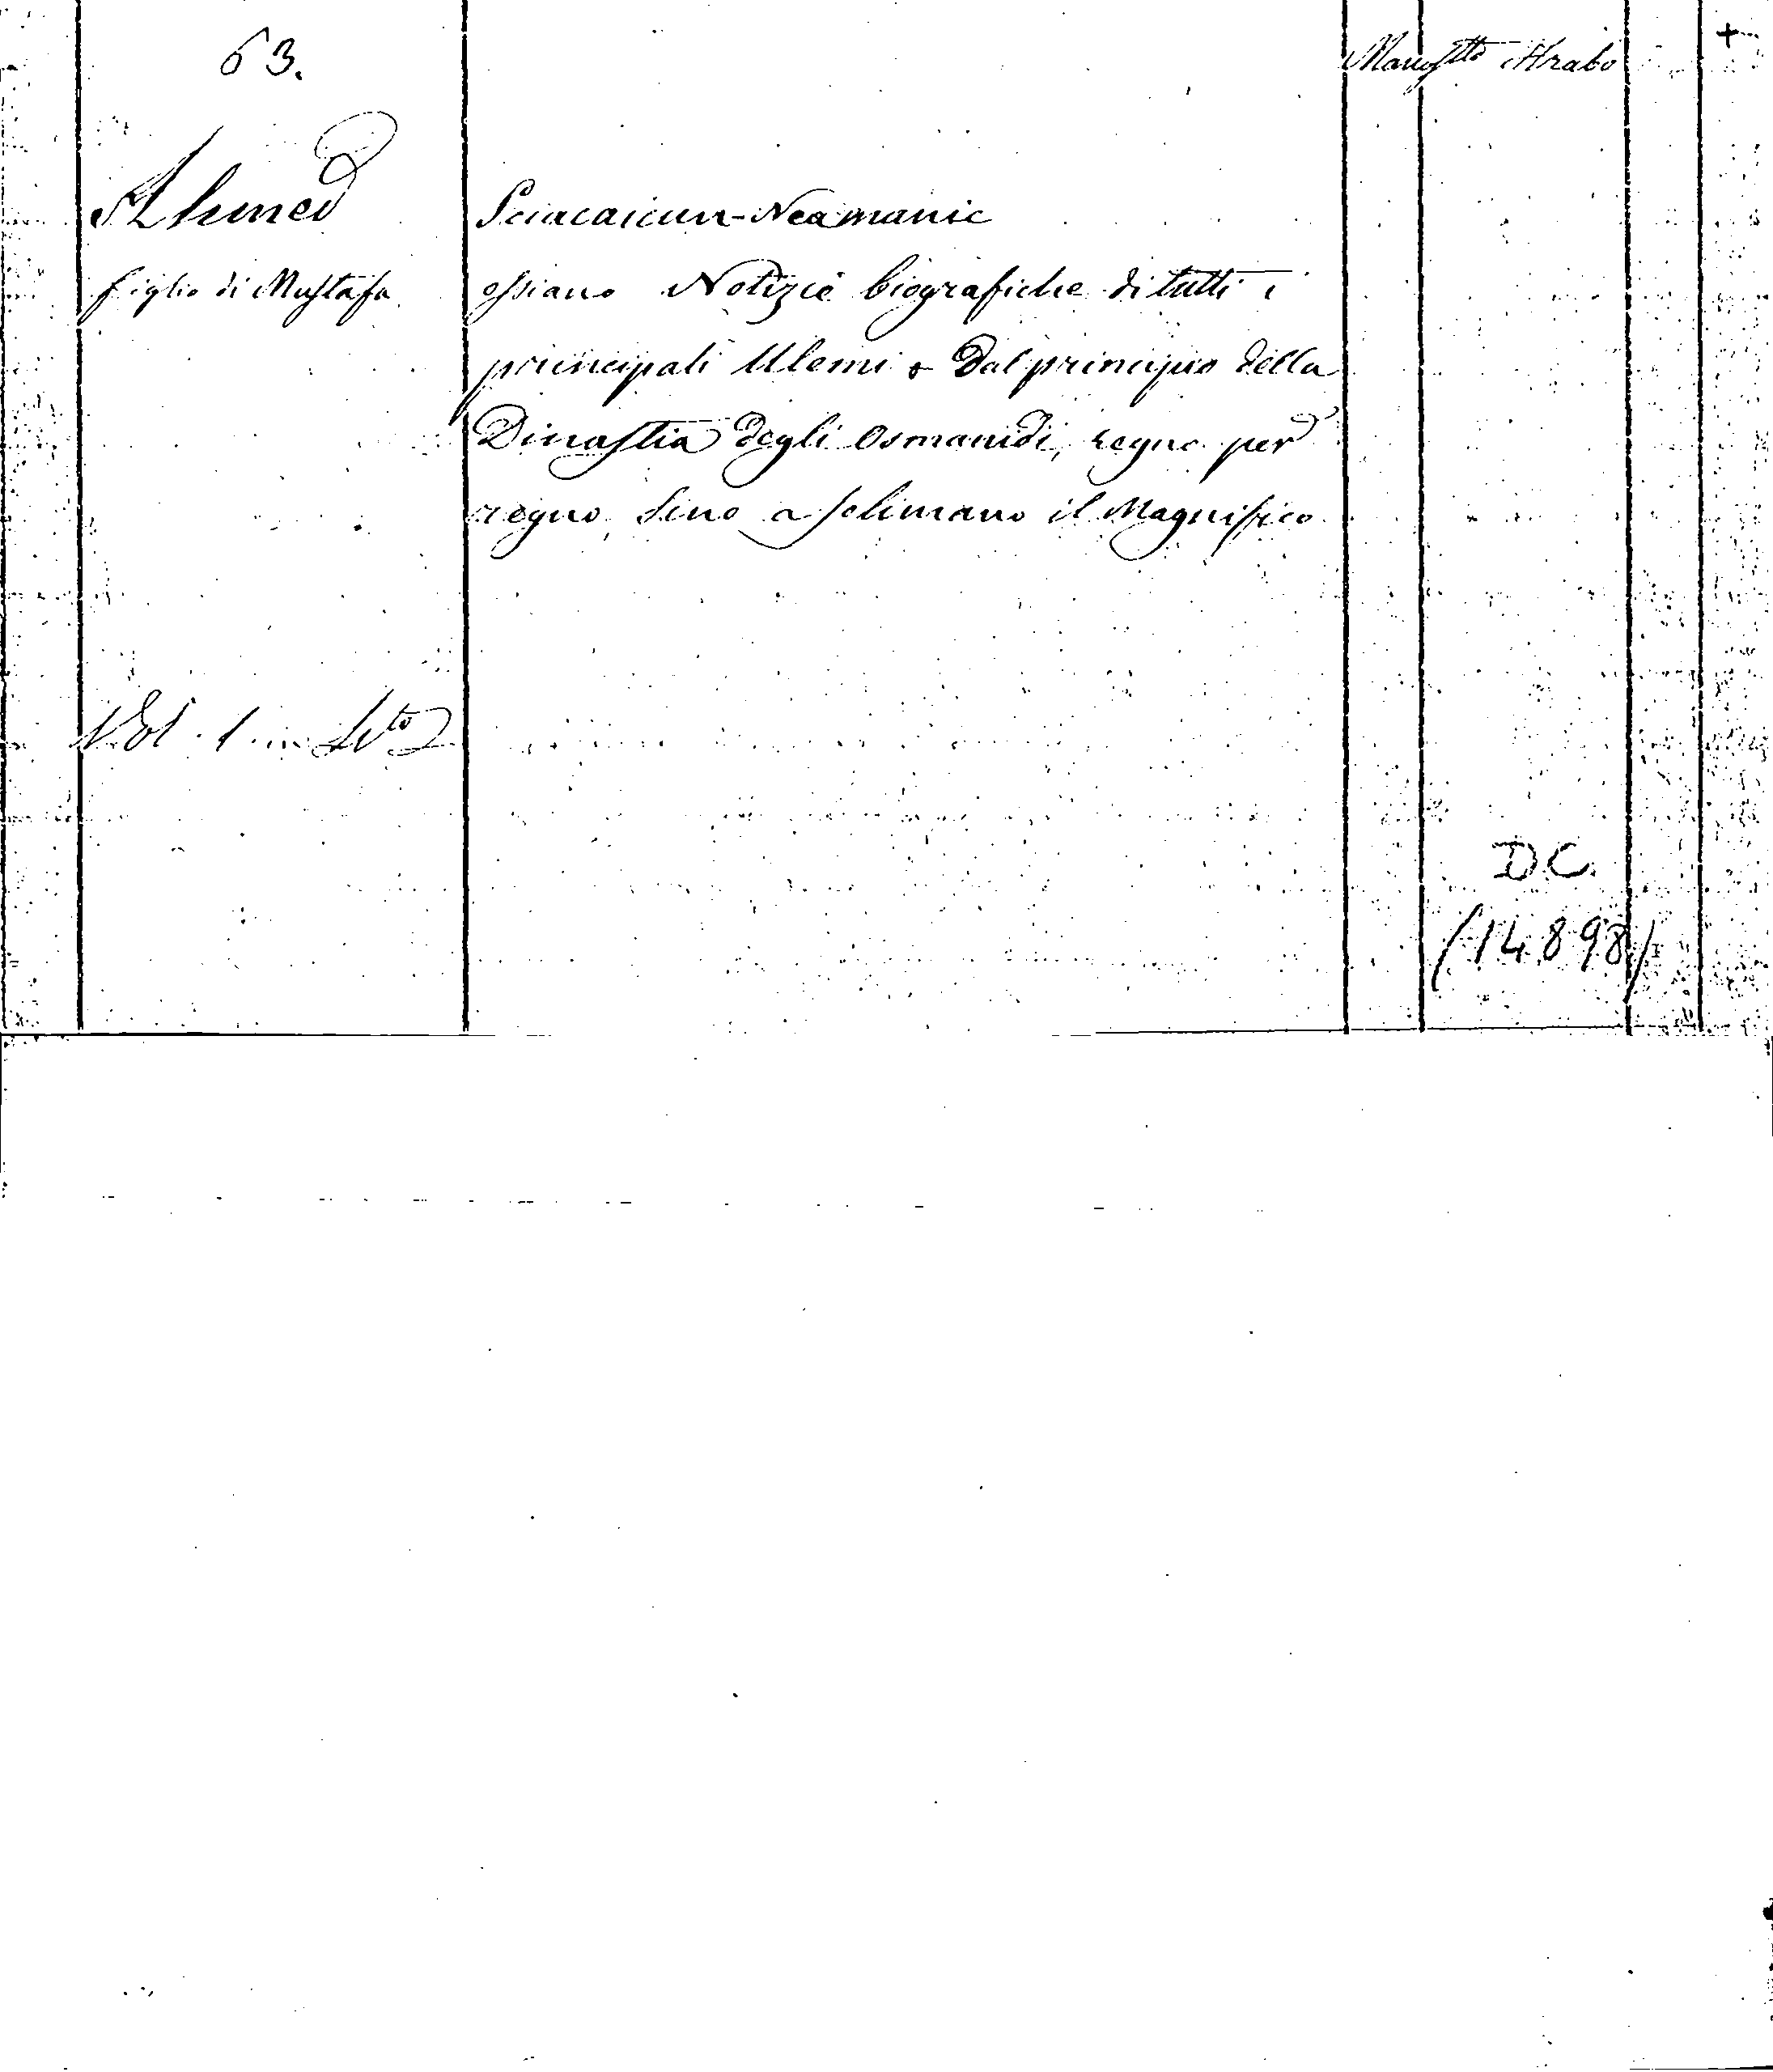 63.
Manostto Arabo
+
Ahmed
figlio di Mustafa
Sciacaicun-Neamanie
ossiano Notizie biografiche di tutti i
principali Ulemi & Dal principio della
Dinastia degli Osmanidi, regno per
regno, sino a Solimano il Magnifico
Vol. 1. in
D.C.
(14898)